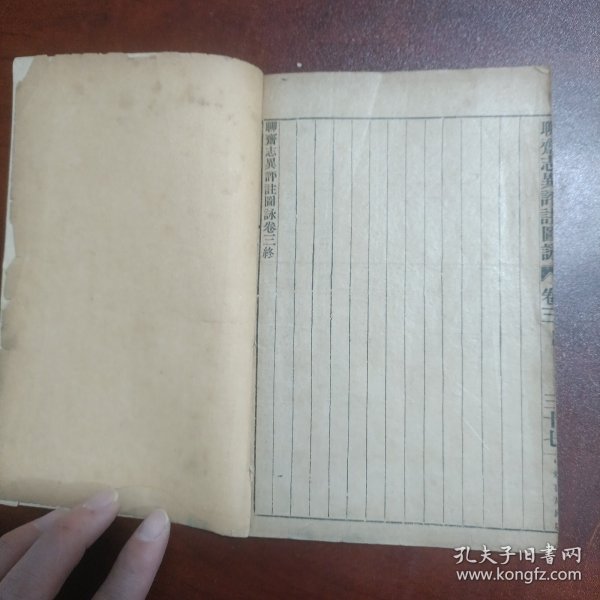 聊齋志異評註圖詠 卷三
三十七
聊齋志異評註圖詠卷三終
孔夫子旧书网
www.kongfz.com